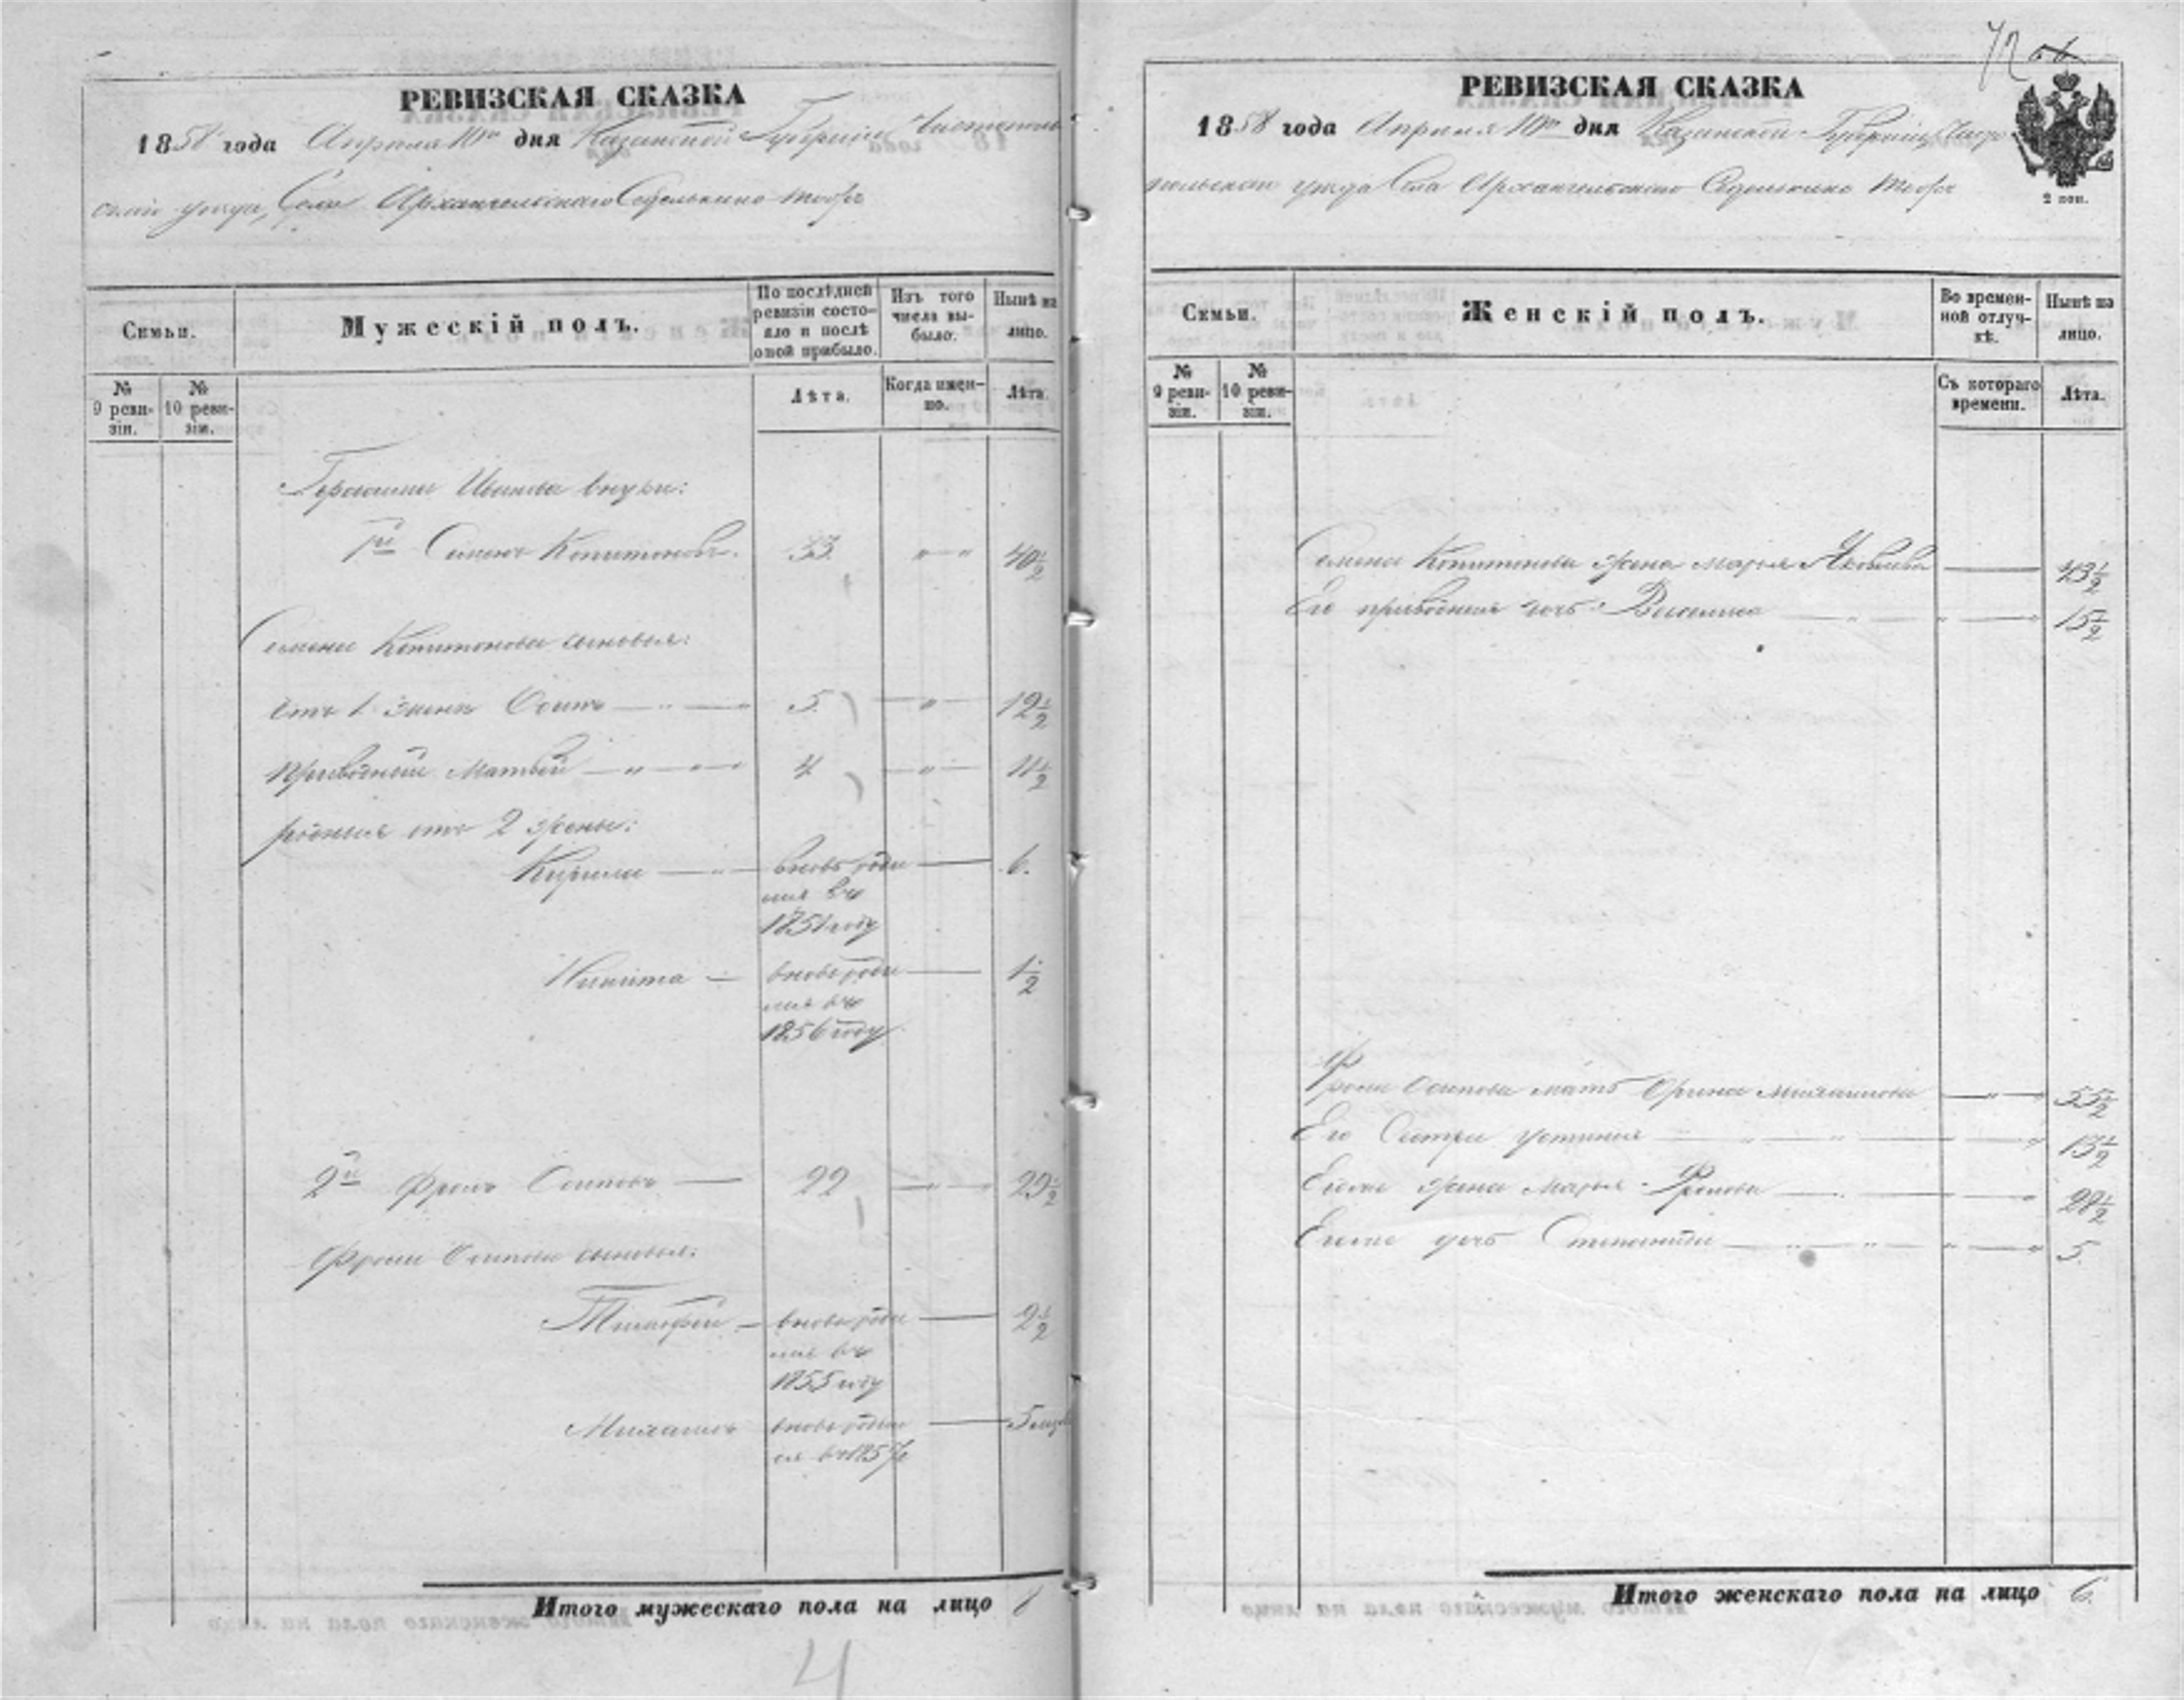 РЕВИЗСКАЯ СКАЗКА
1858 года Апреля 10го дня Казанской Губернии Чистополь
ской уезда, Села Архангельскаго
Семьи.
Мужескій полъ.
По послѣдней ревизіи состояло и послѣ оной прибыло.
Изъ того числа выбыло.
Нынѣ на лицо.
№ 9 ревизіи.
№ 10 ревизіи.
Лѣта.
Когда именно.
Лѣта.
Герасима Иванова внуки:
1й Семенъ Капитоновъ. 33. " " 40½
Семена Капитонова сыновья:
отъ 1 жены Осипъ 5. " 12½
Приводный Матвей 4 " 11½
родныя отъ 2 жены:
Кирила вновь роди 6.
лся въ
1851 году
Никита вновь роди 1½
лся въ
1856 году
2й Фролъ Осиповъ 22 " 29½
Фрола Осипова сыновья:
Тимофей вновь роди 2½
лся въ
1855 году
Михаилъ вновь роди 5 мѣс
лся въ 1857 г
Итого мужескаго пола на лицо 8
4
72
РЕВИЗСКАЯ СКАЗКА
1858 года Апреля 10го дня Казанской Губернии Чисто
польскаго уезда Села Архангельскаго
2 коп.
Семьи.
Женскій полъ.
Во временной отлучкѣ.
Нынѣ на лицо.
№ 9 ревизіи.
№ 10 ревизіи.
Съ котораго времени.
Лѣта.
Семена Капитонова жена Марья Яковлева 43½
Его приводная дочь Васелиса 15½
Фрола Осипова мать Орина Михаилова 55½
Его Сестра Устинья 13½
Егоже жена Марья Фролова 28½
Егоже дочь Степанида 5.
Итого женскаго пола на лицо 6.